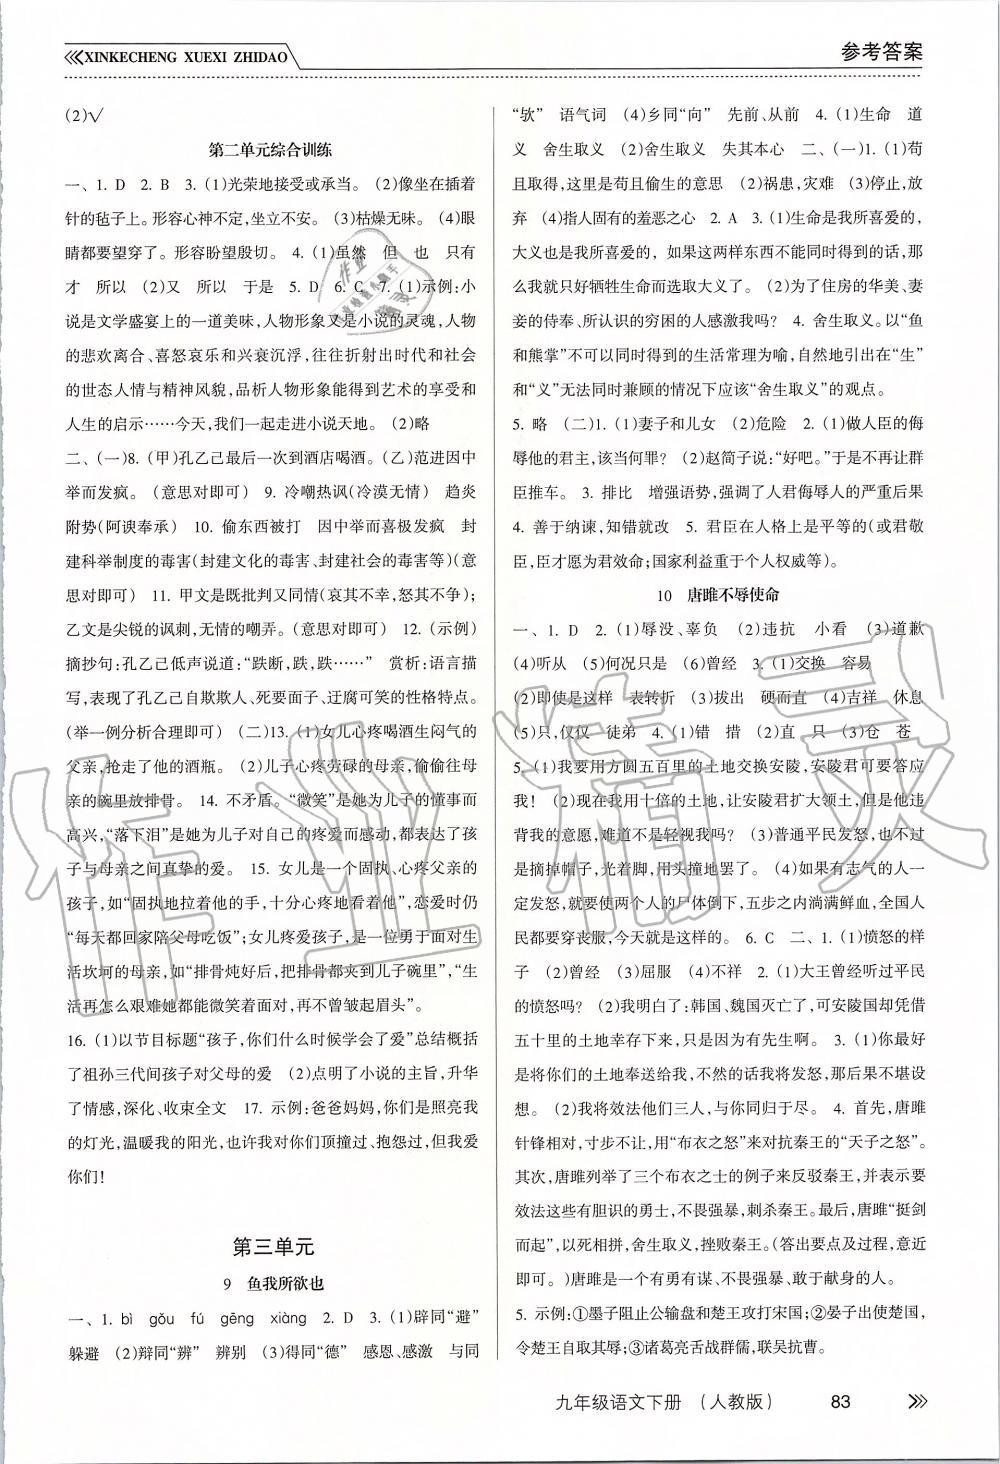 XINKECHENG XUEXI ZHIDAO
参考答案
(2)√
第二单元综合训练
一、1. D 2. B 3. (1)光荣地接受或承当。 (2)像坐在插着
针的毡子上。形容心神不定,坐立不安。 (3)枯燥无味。 (4)眼
睛都要望穿了。形容盼望殷切。 4. (1)虽然 但 也 只有
才 所以 (2)又 所以 于是 5. D 6. C 7. (1)示例:小
说是文学盛宴上的一道美味,人物形象又是小说的灵魂,人物
的悲欢离合、喜怒哀乐和兴衰沉浮,往往折射出时代和社会
的世态人情与精神风貌,品析人物形象能得到艺术的享受和
人生的启示……今天,我们一起走进小说天地。 (2)略
二、(一)8. (甲)孔乙己最后一次到酒店喝酒。(乙)范进因中
举而发疯。(意思对即可) 9. 冷嘲热讽(冷漠无情) 趋炎
附势(阿谀奉承) 10. 偷东西被打 因中举而喜极发疯 封
建科举制度的毒害(封建文化的毒害、封建社会的毒害等)(意
思对即可) 11. 甲文是既批判又同情(哀其不幸,怒其不争);
乙文是尖锐的讽刺,无情的嘲弄。(意思对即可) 12. (示例)
摘抄句:孔乙己低声说道:“跌断,跌,跌……” 赏析:语言描
写,表现了孔乙己自欺欺人、死要面子、迂腐可笑的性格特点。
(举一例分析合理即可) (二)13. (1)女儿心疼喝酒生闷气的
父亲,抢走了他的酒瓶。 (2)儿子心疼劳碌的母亲,偷偷往母
亲的碗里放排骨。 14. 不矛盾。“微笑”是她为儿子的懂事而
高兴,“落下泪”是她为儿子对自己的疼爱而感动,都表达了孩
子与母亲之间真挚的爱。 15. 女儿是一个固执、心疼父亲的
孩子,如“固执地拉着他的手,十分心疼地看着他”,恋爱时仍
“每天都回家陪父母吃饭”;女儿疼爱孩子,是一位勇于面对生
活坎坷的母亲,如“排骨炖好后,把排骨都夹到儿子碗里”,“生
活再怎么艰难她都能微笑着面对,再不曾皱起眉头”。
16. (1)以节目标题“孩子,你们什么时候学会了爱”总结概括
了祖孙三代间孩子对父母的爱 (2)点明了小说的主旨,升华
了情感,深化、收束全文 17. 示例:爸爸妈妈,你们是照亮我
的灯光,温暖我的阳光,也许我对你们顶撞过、抱怨过,但我爱
你们!
第三单元
9 鱼我所欲也
一、1. bì gǒu fú gēng xiàng 2. D 3. (1)辟同“避”
躲避 (2)辩同“辨” 辨别 (3)得同“德” 感恩、感激 与同
“欤” 语气词 (4)乡同“向” 先前、从前 4. (1)生命 道
义 舍生取义 (2)舍生取义 失其本心 二、(一)1. (1)苟
且取得,这里是苟且偷生的意思 (2)祸患,灾难 (3)停止,放
弃 (4)指人固有的羞恶之心 2. A 3. (1)生命是我所喜爱的,
大义也是我所喜爱的, 如果这两样东西不能同时得到的话,那
么我就只好牺牲生命而选取大义了。 (2)为了住房的华美、妻
妾的侍奉、所认识的穷困的人感激我吗? 4. 舍生取义。以“鱼
和熊掌”不可以同时得到的生活常理为喻,自然地引出在“生”
和“义”无法同时兼顾的情况下应该“舍生取义”的观点。
5. 略 (二)1. (1)妻子和儿女 (2)危险 2. (1)做人臣的侮
辱他的君主,该当何罪? (2)赵简子说:“好吧。”于是不再让群
臣推车。 3. 排比 增强语势,强调了人君侮辱人的严重后果
4. 善于纳谏,知错就改 5. 君臣在人格上是平等的(或君敬
臣,臣才愿为君效命;国家利益重于个人权威等)。
10 唐雎不辱使命
一、1. D 2. (1)辱没、辜负 (2)违抗 小看 (3)道歉
(4)听从 (5)何况只是 (6)曾经 3. (1)交换 容易
(2)即使是这样 表转折 (3)拔出 硬而直 (4)吉祥 休息
(5)只,仅仅 徒弟 4. (1)错 措 (2)直 只 (3)仓 苍
5. (1)我要用方圆五百里的土地交换安陵,安陵君可要答应
我! (2)现在我用十倍的土地,让安陵君扩大领土,但是他违
背我的意愿,难道不是轻视我吗? (3)普通平民发怒,也不过
是摘掉帽子,光着脚,用头撞地罢了。 (4)如果有志气的人一
定发怒,就要使两个人的尸体倒下,五步之内淌满鲜血,全国人
民都要穿丧服,今天就是这样的。 6. C 二、1. (1)愤怒的样
子 (2)曾经 (3)屈服 (4)不祥 2. (1)大王曾听说过平民
的愤怒吗? (2)我明白了:韩国、魏国灭亡了,可安陵国却凭借
五十里的土地幸存下来,只是因为有先生啊。 3. (1)你最好
是将你们的土地奉送给我,不然的话我将会发怒,那后果不堪设
想。 (2)我将效法他们三人,与你同归于尽。 4. 首先,唐雎
针锋相对,寸步不让,用“布衣之怒”来对抗秦王的“天子之怒”。
其次,唐雎列举了三个布衣之士的例子来反驳秦王,并表示要
效法这些有胆识的勇士,不畏强暴,刺杀秦王。最后,唐雎“挺剑
而起”,以死相拼,舍生取义,挫败秦王。(答出要点及过程,意近
即可。)唐雎是一个有勇有谋、不畏强暴、敢于献身的人。
5. 示例:①墨子阻止公输盘和楚王攻打宋国;②晏子出使楚国,
令楚王自取其辱;③诸葛亮舌战群儒,联吴抗曹。
九年级语文下册 (人教版) 83
作业精灵